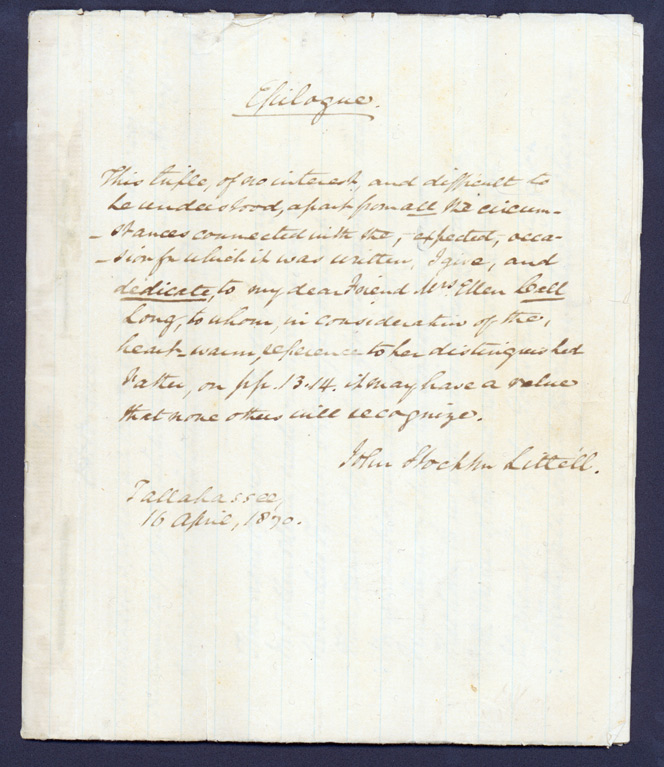 Epilogue.
This trifle, of no interest, and difficult to
be understood, apart from all the circum-
-stances connected with the, expected, occa-
-sion for which it was written, I give, and
dedicate, to my dear Friend Mrs. Ellen Call
Long, to whom, in consideration of the,
heart-warm, reference to her distinguished
Father, on pp. 13-14. it may have a value
that none others will recognize.
John Stockton Littell.
Tallahassee,
16 April, 1870.